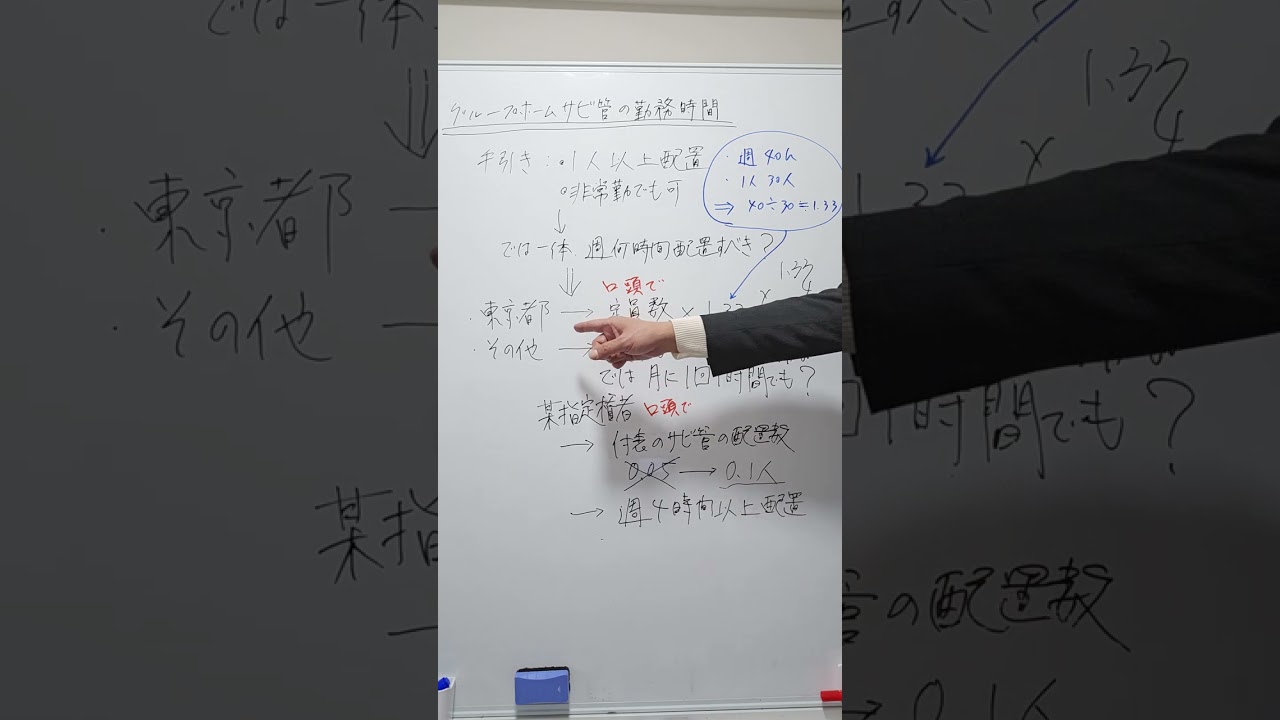 グループホームサビ管の勤務時間
手引き：・1人以上配置
○非常勤でも可
・週40h
・1人30人
⇒ 40÷30≒1.33
↓
では一体、週何時間配置すべき？
⇓
口頭で
1.33
・東京都 → 定員数 × 1.33 ×
・その他 →
では月に1回1時間でも？
某指定権者 口頭で
→ 付表のサビ管の配置数
0.05 → 0.1人
→ 週4時間以上配置